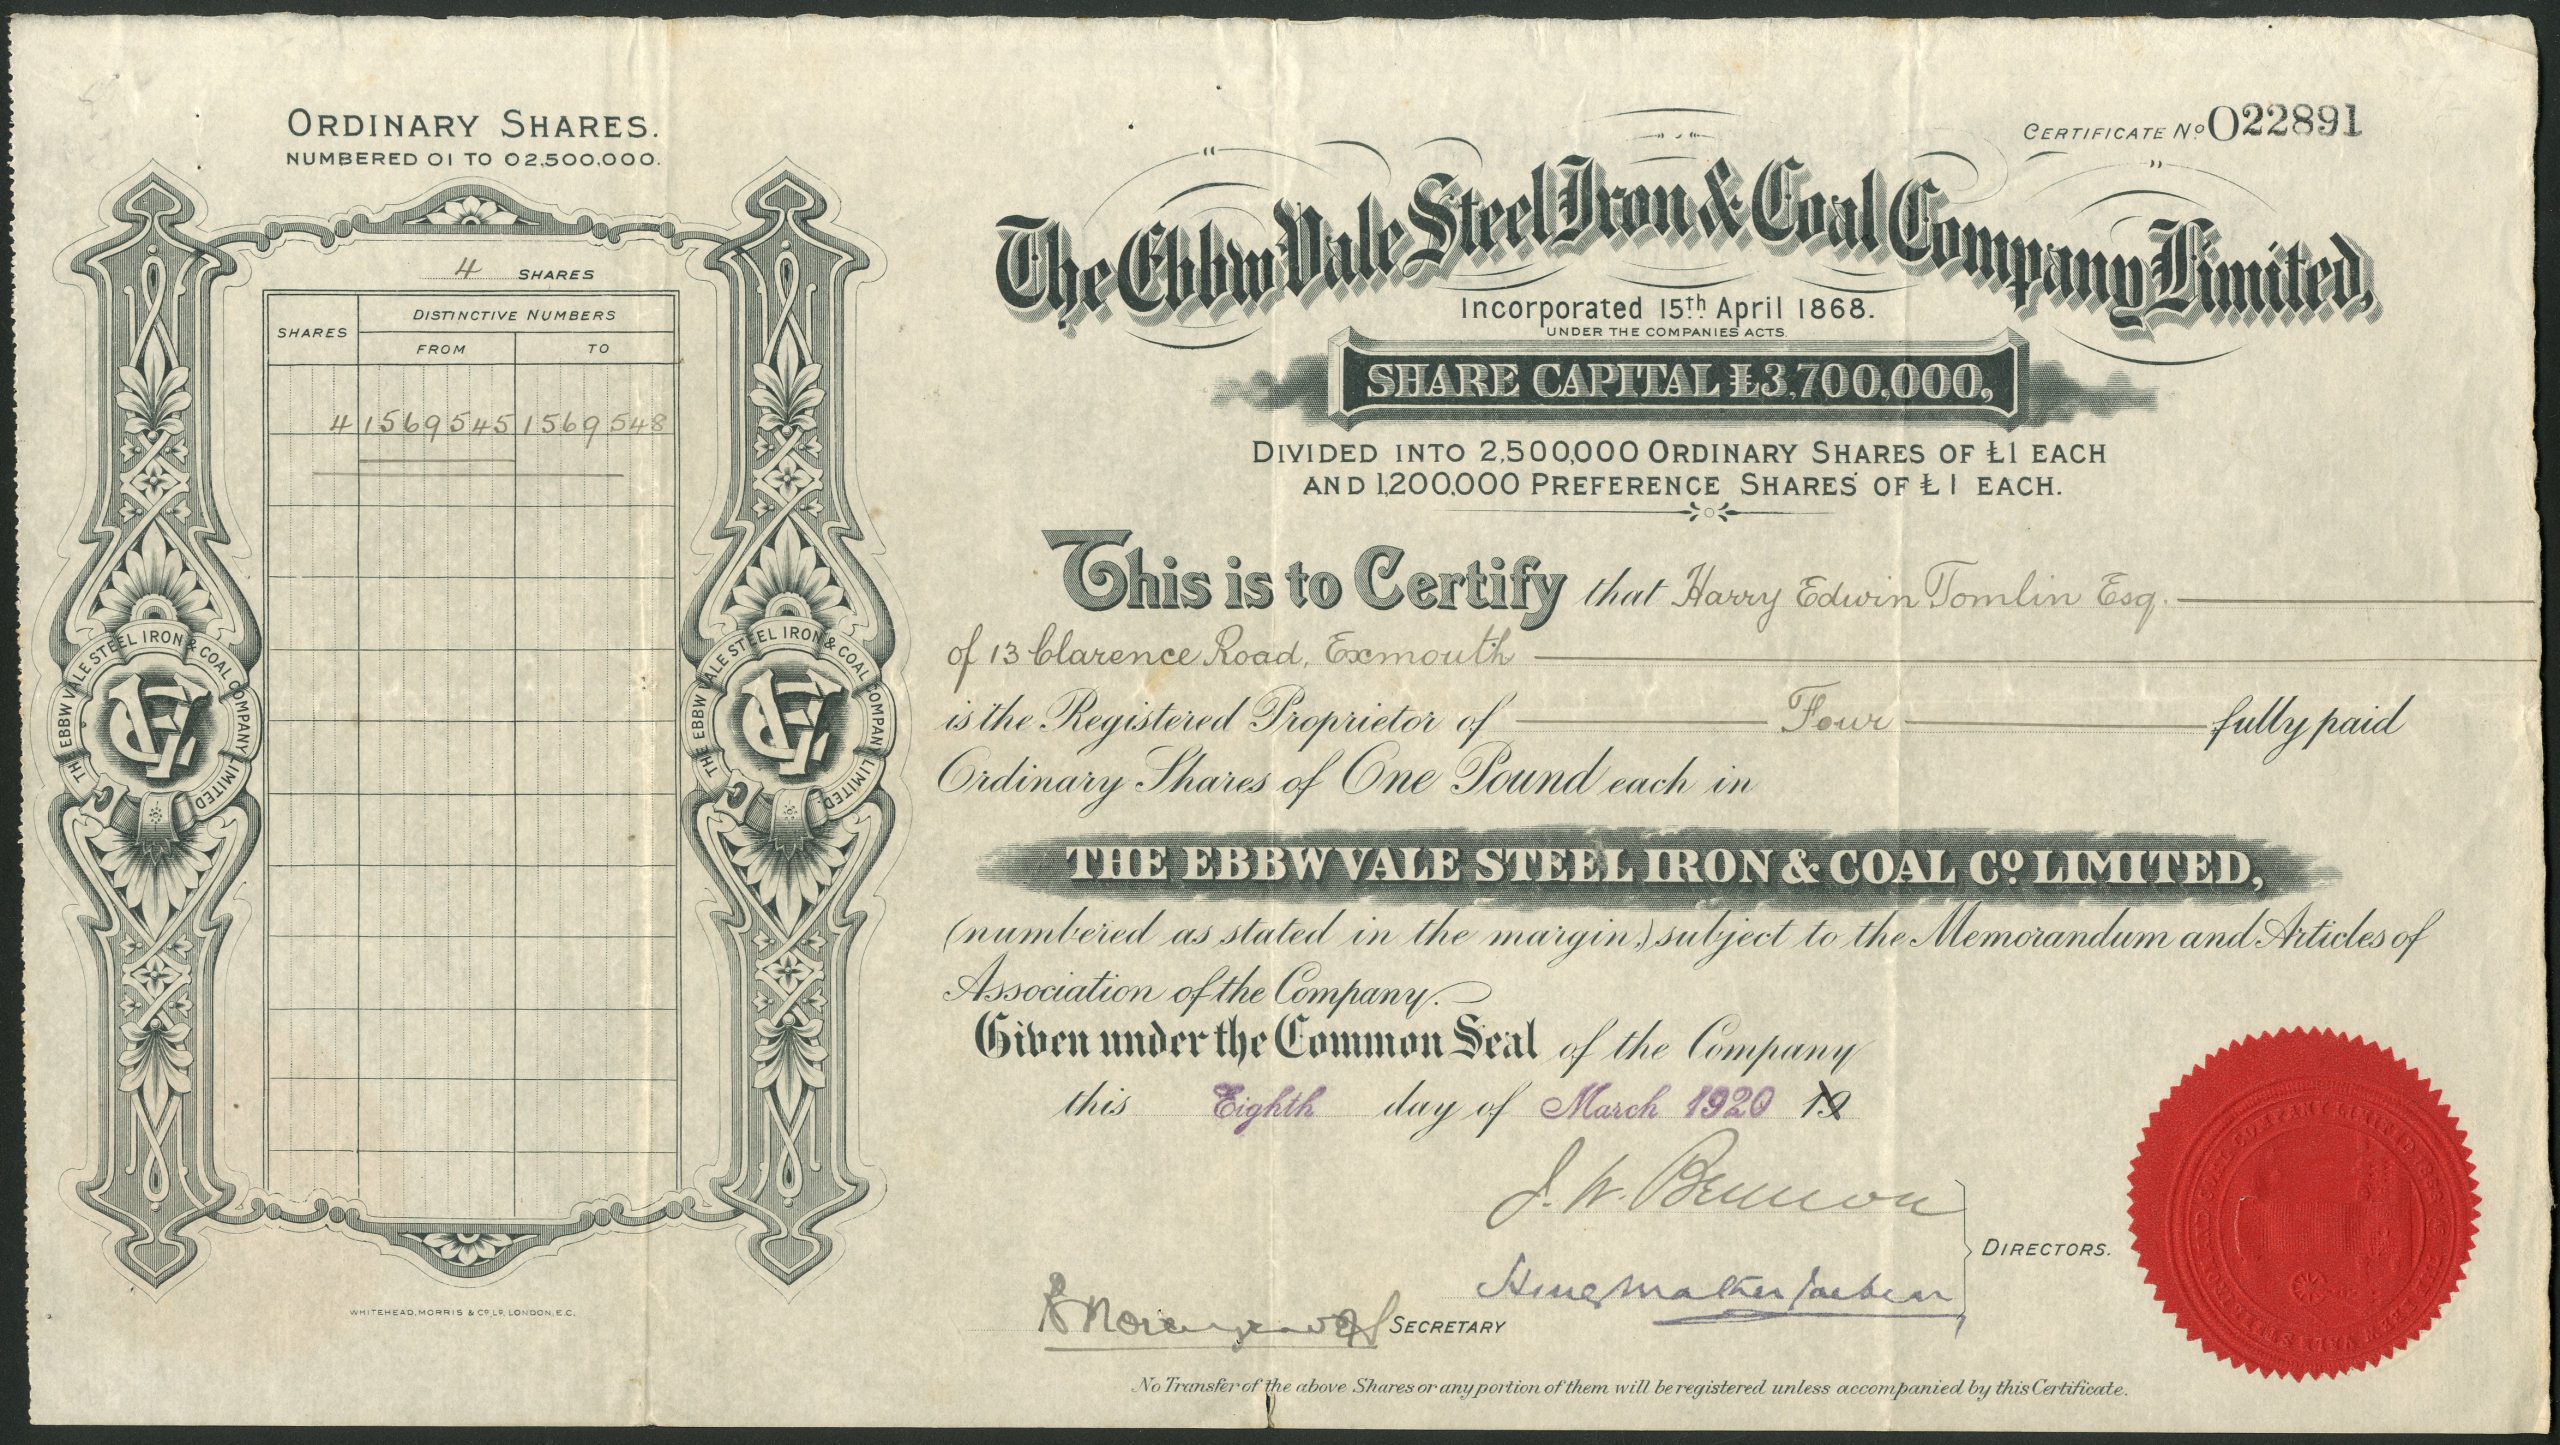 ORDINARY SHARES.
NUMBERED O1 TO O2,500,000.
4 SHARES
SHARES
DISTINCTIVE NUMBERS
FROM TO
4 1569545 1569548
THE EBBW VALE STEEL IRON & COAL COMPANY LIMITED
EV
THE EBBW VALE STEEL IRON & COAL COMPANY LIMITED.
EV
WHITEHEAD, MORRIS & Co. Ld. LONDON, E.C.
CERTIFICATE No O22891
The Ebbw Vale Steel Iron & Coal Company Limited,
Incorporated 15th April 1868.
UNDER THE COMPANIES ACTS.
SHARE CAPITAL £3,700,000,
DIVIDED INTO 2,500,000 ORDINARY SHARES OF £1 EACH
AND 1,200,000 PREFERENCE SHARES OF £1 EACH.
This is to Certify that Harry Edwin Tomlin Esq.
of 13 Clarence Road, Exmouth
is the Registered Proprietor of Four fully paid
Ordinary Shares of One Pound each in
THE EBBW VALE STEEL IRON & COAL Co. LIMITED,
(numbered as stated in the margin,) subject to the Memorandum and Articles of
Association of the Company.
Given under the Common Seal of the Company
this Eighth day of March 1920 19
J. W.
DIRECTORS.
SECRETARY
No Transfer of the above Shares or any portion of them will be registered unless accompanied by this Certificate.